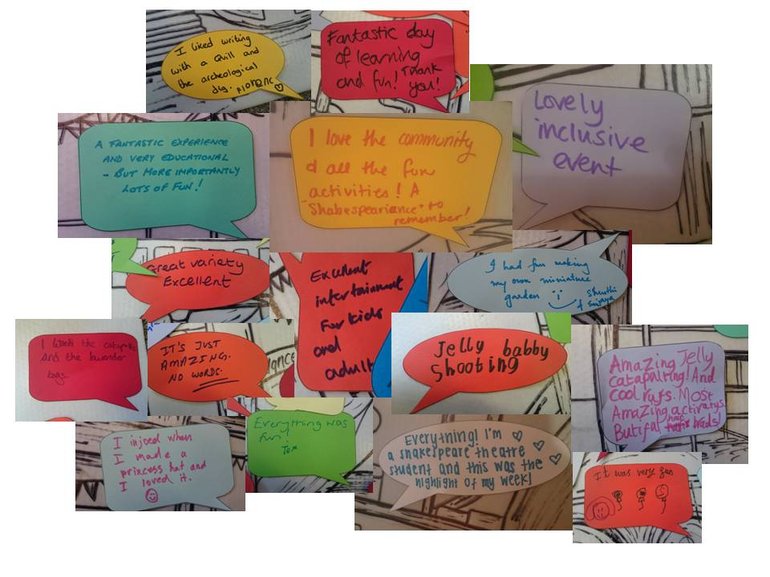 I liked writing
with a Quill and
the archeological
dig.
Fantastic day
of learning
and fun! Thank
you!
Lovely
inclusive
event
A FANTASTIC EXPERIENCE
AND VERY EDUCATIONAL
- BUT MORE IMPORTANTLY
LOTS OF FUN!
I love the community
& all the fun
activities! A
"Shakespeariance" to
remember!
Great variety
Excellent
Excellent
intertainment
For kids
and
adult
I had fun making
my own miniature
garden
&
I the
and the lavander
bags
IT'S JUST
AMAZING.
NO WORDS.
Jelly babby
Shooting
Amazing Jelly
catapulting! And
cool rafs. Most
Amazing activatys.
Butiful hair braids!
I injoed when
I made a
princess hat and
I loved it.
Everything was
fun!
Tom
Everything! I'm
a shakespeare theatre
student and this was the
highlight of my week!
It was very fun